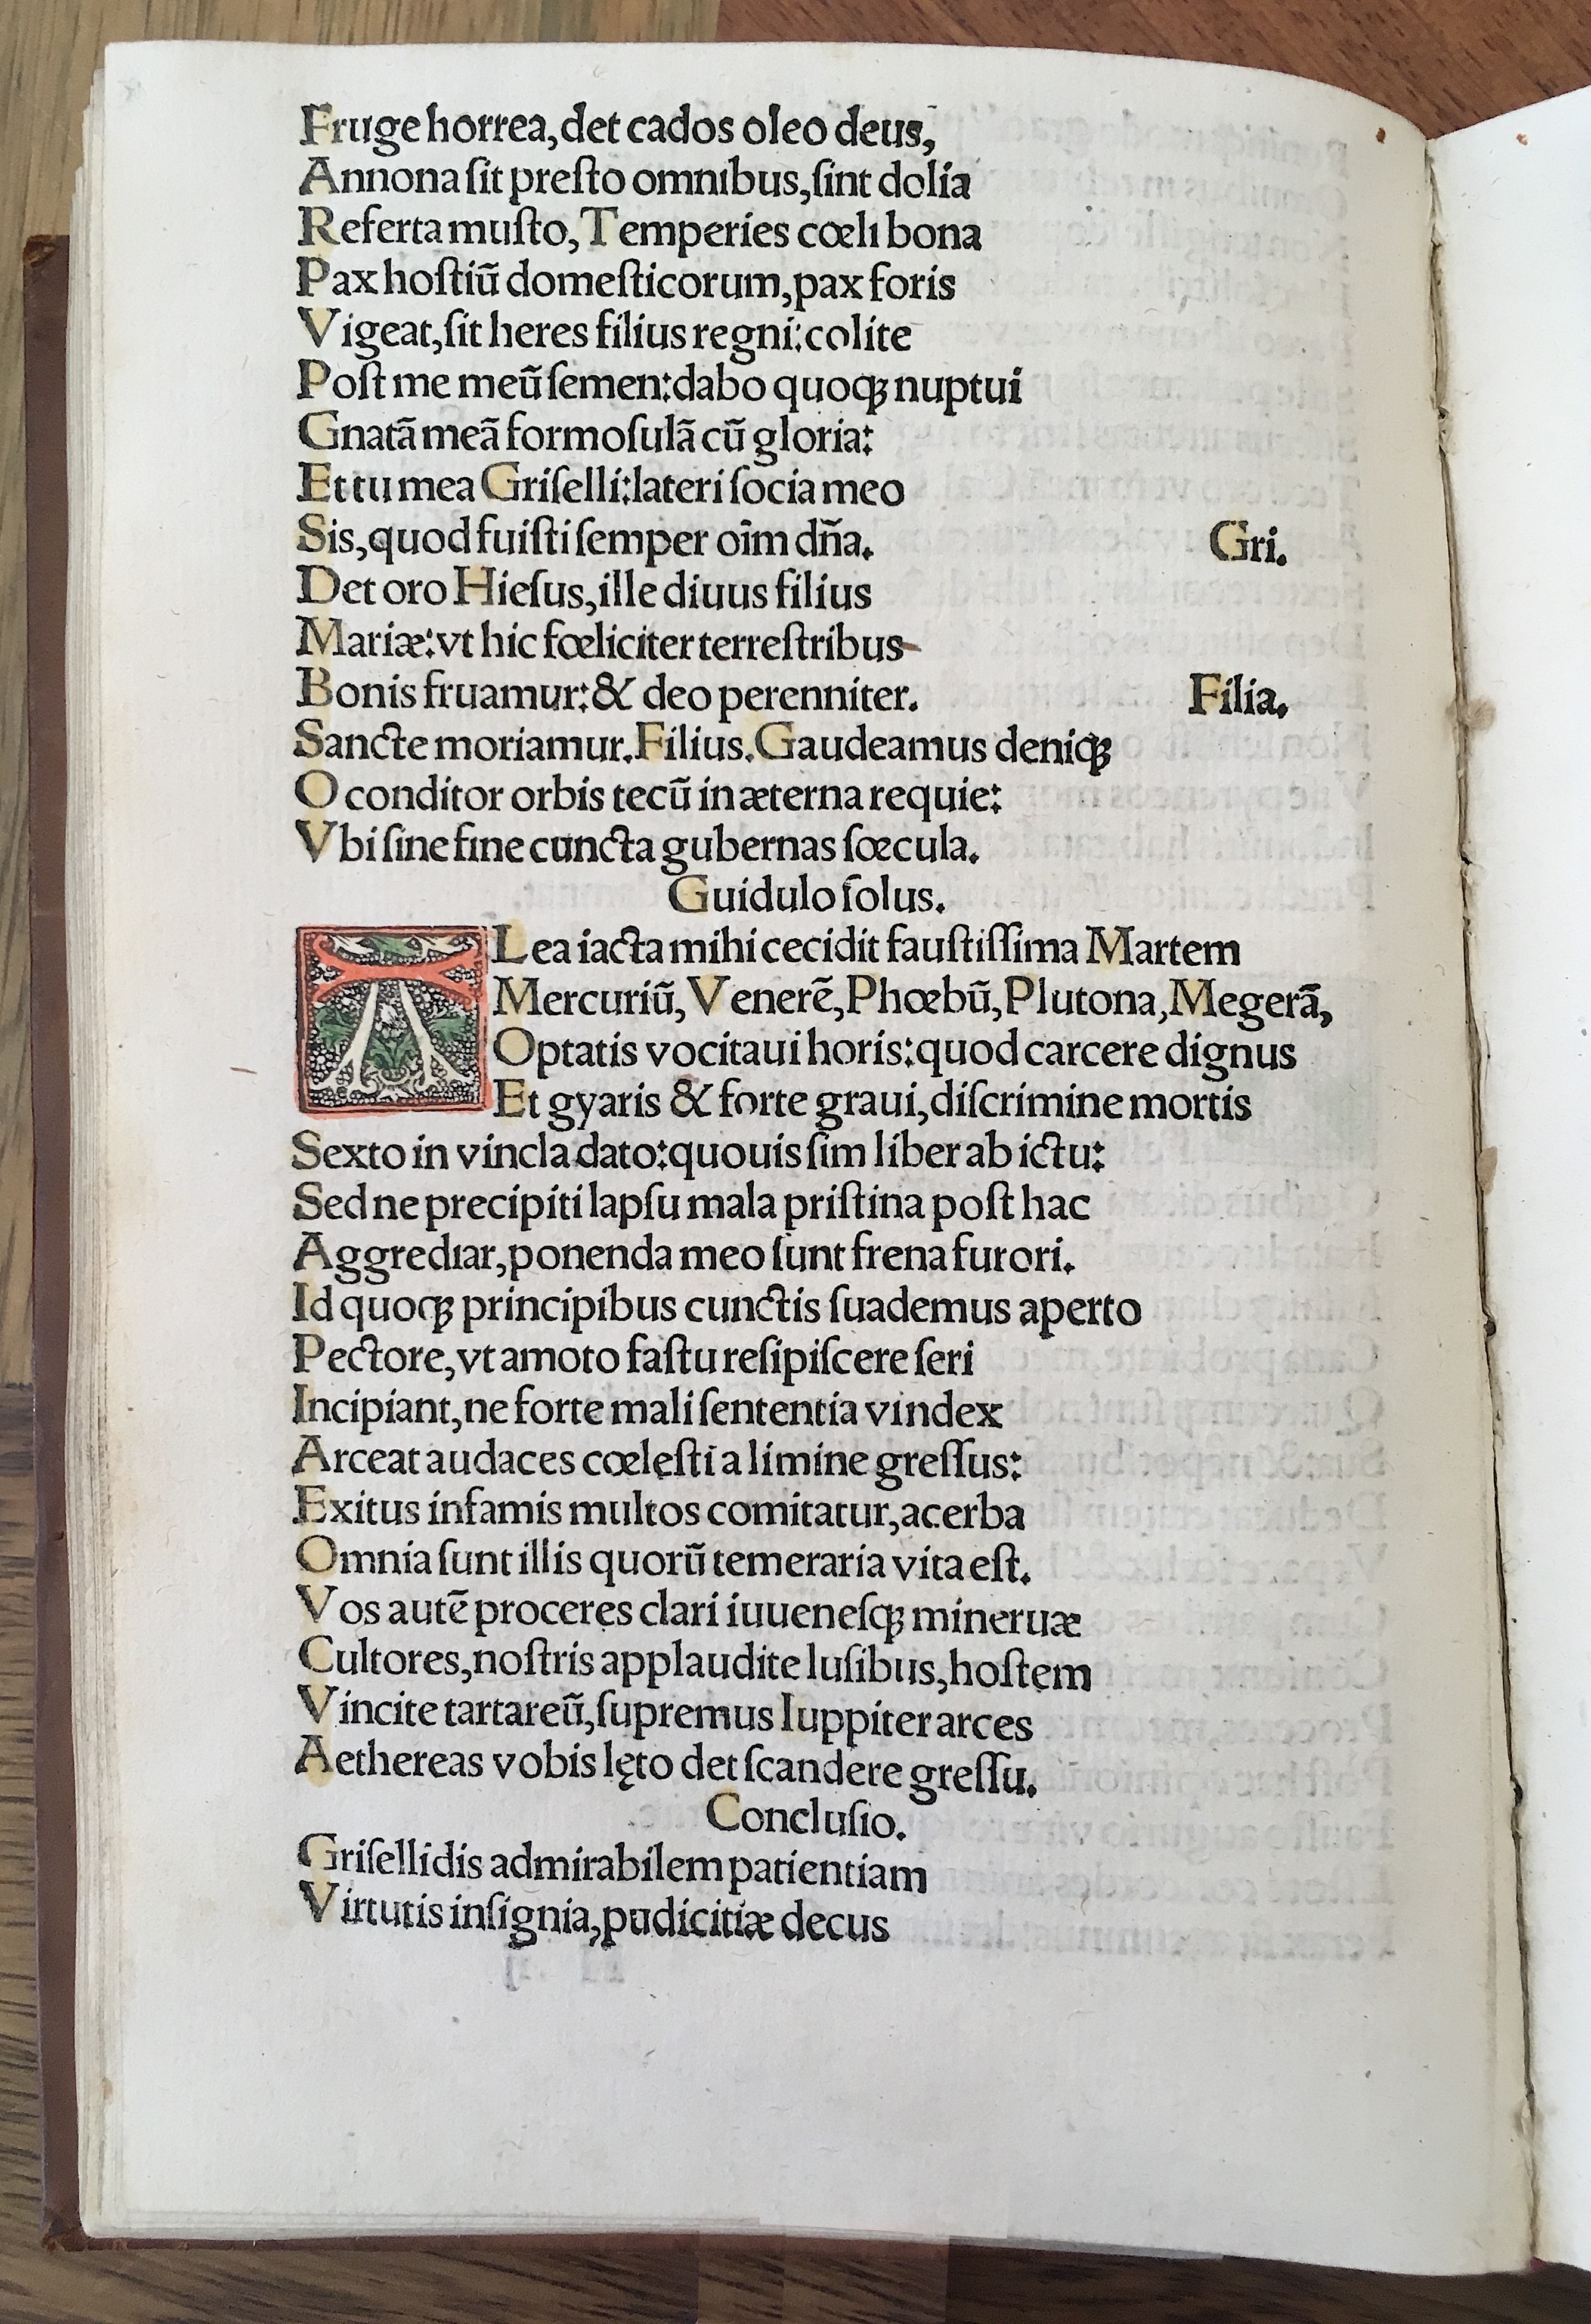 Fruge horrea, det cados oleo deus,
Annona ſit preſto omnibus, ſint dolia
Referta muſto, Temperies cœli bona
Pax hoſtiū domeſticorum, pax foris
Vigeat, ſit heres filius regni: colite
Poſt me meū ſemen: dabo quoqꝫ nuptui
Gnatā meā formoſulā cū gloria:
Et tu mea Griſelli: lateri ſocia meo
Sis, quod fuiſti ſemper oīm dn̄a. Gri.
Det oro Hieſus, ille diuus filius
Mariæ: vt hic fœliciter terreſtribus
Bonis fruamur: & deo perenniter. Filia.
Sancte moriamur. Filius. Gaudeamus deniqꝫ
O conditor orbis tecū in æterna requie:
Vbi ſine fine cuncta gubernas ſœcula.
Guidulo ſolus.
ALea iacta mihi cecidit fauſtiſſima Martem
Mercuriū, Venerē, Phœbū, Plutona, Megerā,
Optatis vocitaui horis: quod carcere dignus
Et gyaris & forte graui, diſcrimine mortis
Sexto in vincla dato: quouis ſim liber ab ictu:
Sed ne precipiti lapſu mala priſtina poſt hac
Aggrediar, ponenda meo ſunt frena furori.
Id quoqꝫ principibus cunctis ſuademus aperto
Pectore, vt amoto faſtu reſipiſcere ſeri
Incipiant, ne forte mali ſententia vindex
Arceat audaces cœleſti a limine greſſus:
Exitus infamis multos comitatur, acerba
Omnia ſunt illis quorū temeraria vita eſt.
Vos autē proceres clari iuueneſqꝫ mineruæ
Cultores, noſtris applaudite luſibus, hoſtem
Vincite tartareū, ſupremus Iuppiter arces
Aethereas vobis lęto det ſcandere greſſu.
Concluſio.
Griſellidis admirabilem patientiam
Virtutis inſignia, pudicitiæ decus